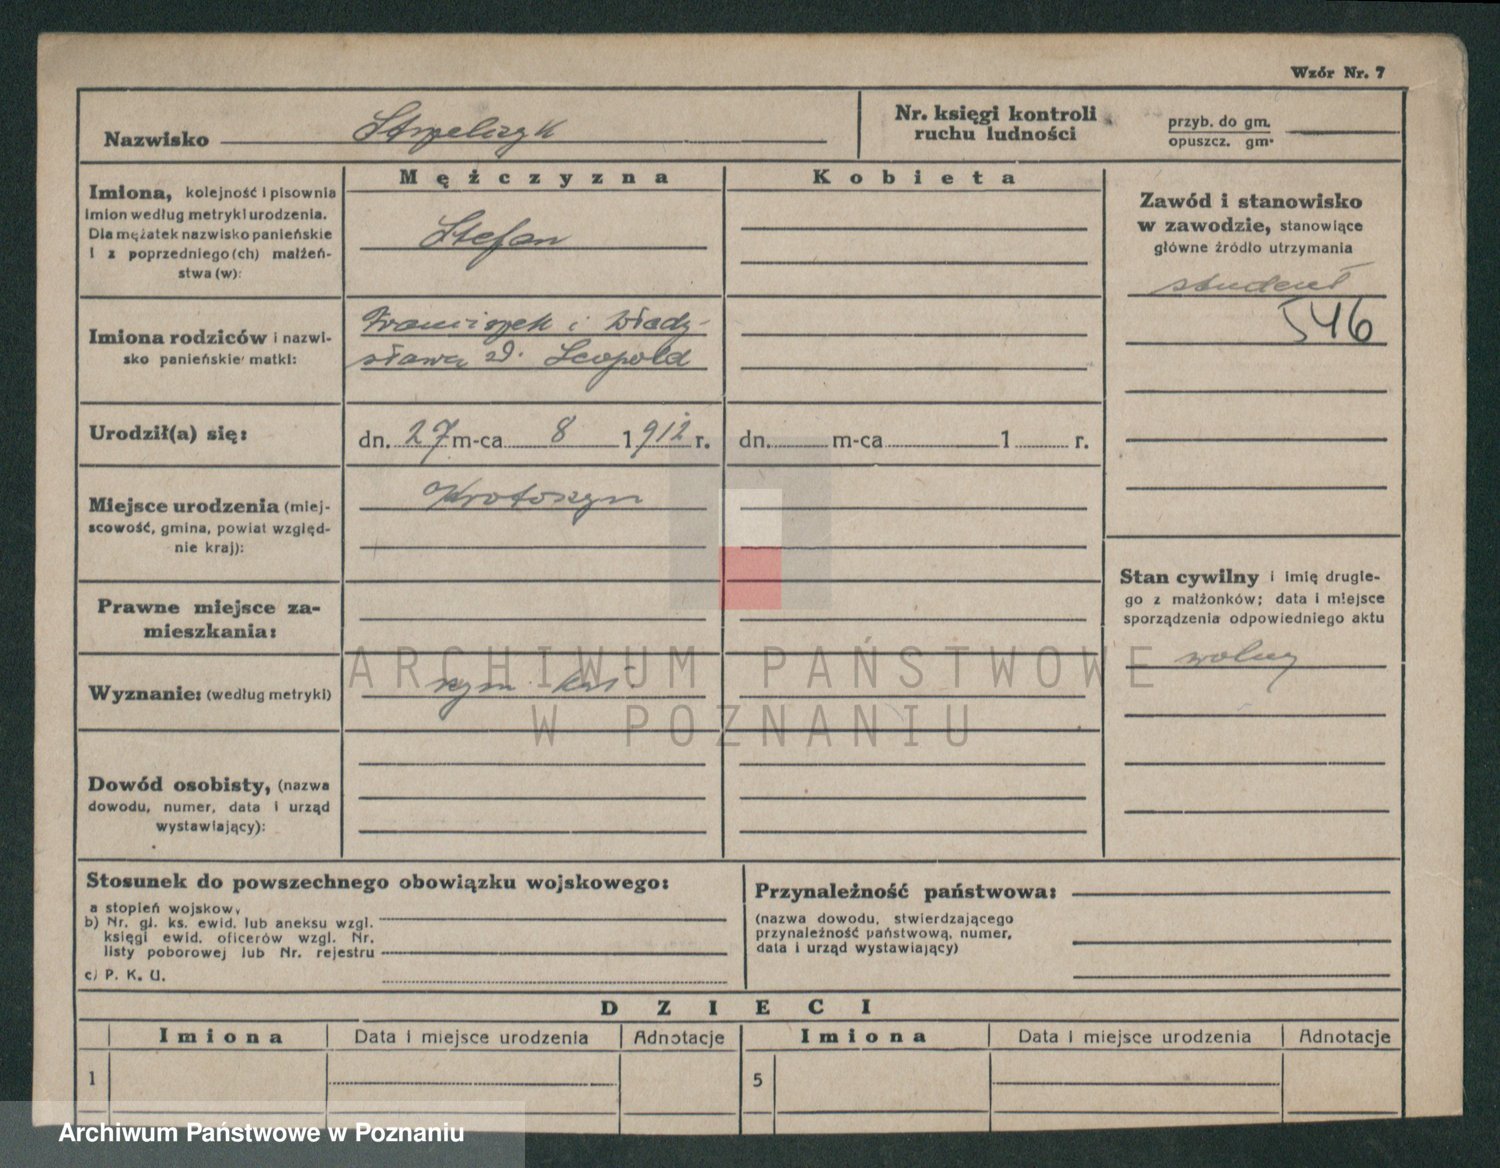 Wzór Nr. 7
Nazwisko Strzelczyk
Nr. księgi kontroli
ruchu ludności
przyb. do gm.
opuszcz. gm.
Mężczyzna
Kobieta
Imiona, kolejność i pisownia
imion według metryki urodzenia.
Dla mężatek nazwisko panieńskie
i z poprzedniego(ch) małżeń-
stwa(w):
Stefan
Zawód i stanowisko
w zawodzie, stanowiące
główne źródło utrzymania
student
546
Imiona rodziców i nazwi-
sko panieńskie matki:
Franciszek i Włady-
sława d. Leopold
Urodził(a) się:
dn. 27 m-ca 8 1912 r.
dn. m-ca 1 r.
Miejsce urodzenia (miej-
scowość, gmina, powiat względ-
nie kraj):
Krotoszyn
Stan cywilny i imię drugie-
go z małżonków; data i miejsce
sporządzenia odpowiedniego aktu
wolny
Prawne miejsce za-
mieszkania:
Wyznanie: (według metryki)
rzym. kat.
ARCHIWUM PAŃSTWOWE
W POZNANIU
Dowód osobisty, (nazwa
dowodu, numer, data i urząd
wystawiający):
Stosunek do powszechnego obowiązku wojskowego:
a stopień wojskow.
b) Nr. gł. ks. ewid. lub aneksu wzgl.
księgi ewid. oficerów wzgl. Nr.
listy poborowej lub Nr. rejestru
c) P. K. U.
Przynależność państwowa:
(nazwa dowodu, stwierdzającego
przynależność państwową, numer,
data i urząd wystawiający)
DZIECI
Imiona Data i miejsce urodzenia Adnotacje Imiona Data i miejsce urodzenia Adnotacje
1 5
Archiwum Państwowe w Poznaniu